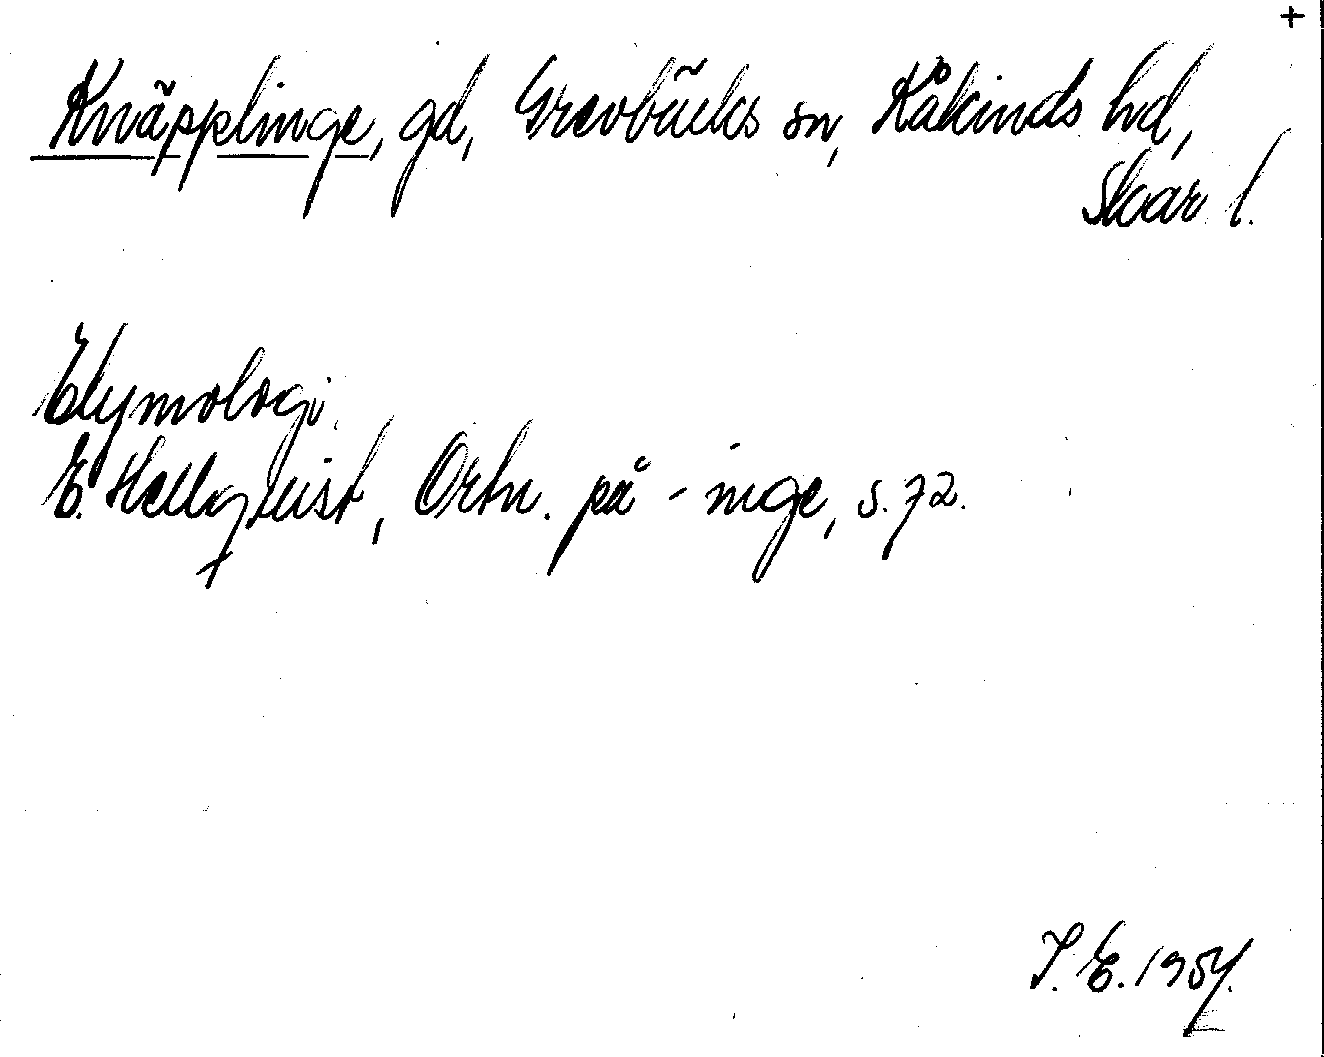 +
Knäpplinge, gd, Grevbäcks sn, Kåkinds hd,
Skar. l.
Etymologi
E. Hellquist, Ortn. på -inge, s. 72.
I. E. 1954.